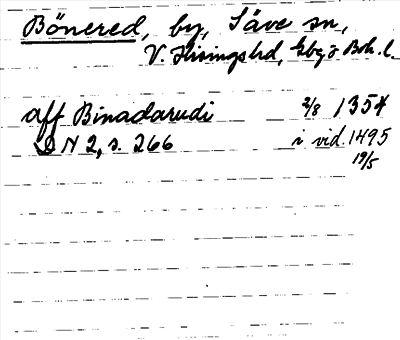 Bönered, by, Säve sn,
V. Hisingshd, Gbg o Boh. l.
aff Binadarudi 2/8 1354
DN 2, s. 266 i vid. 1495
19/5